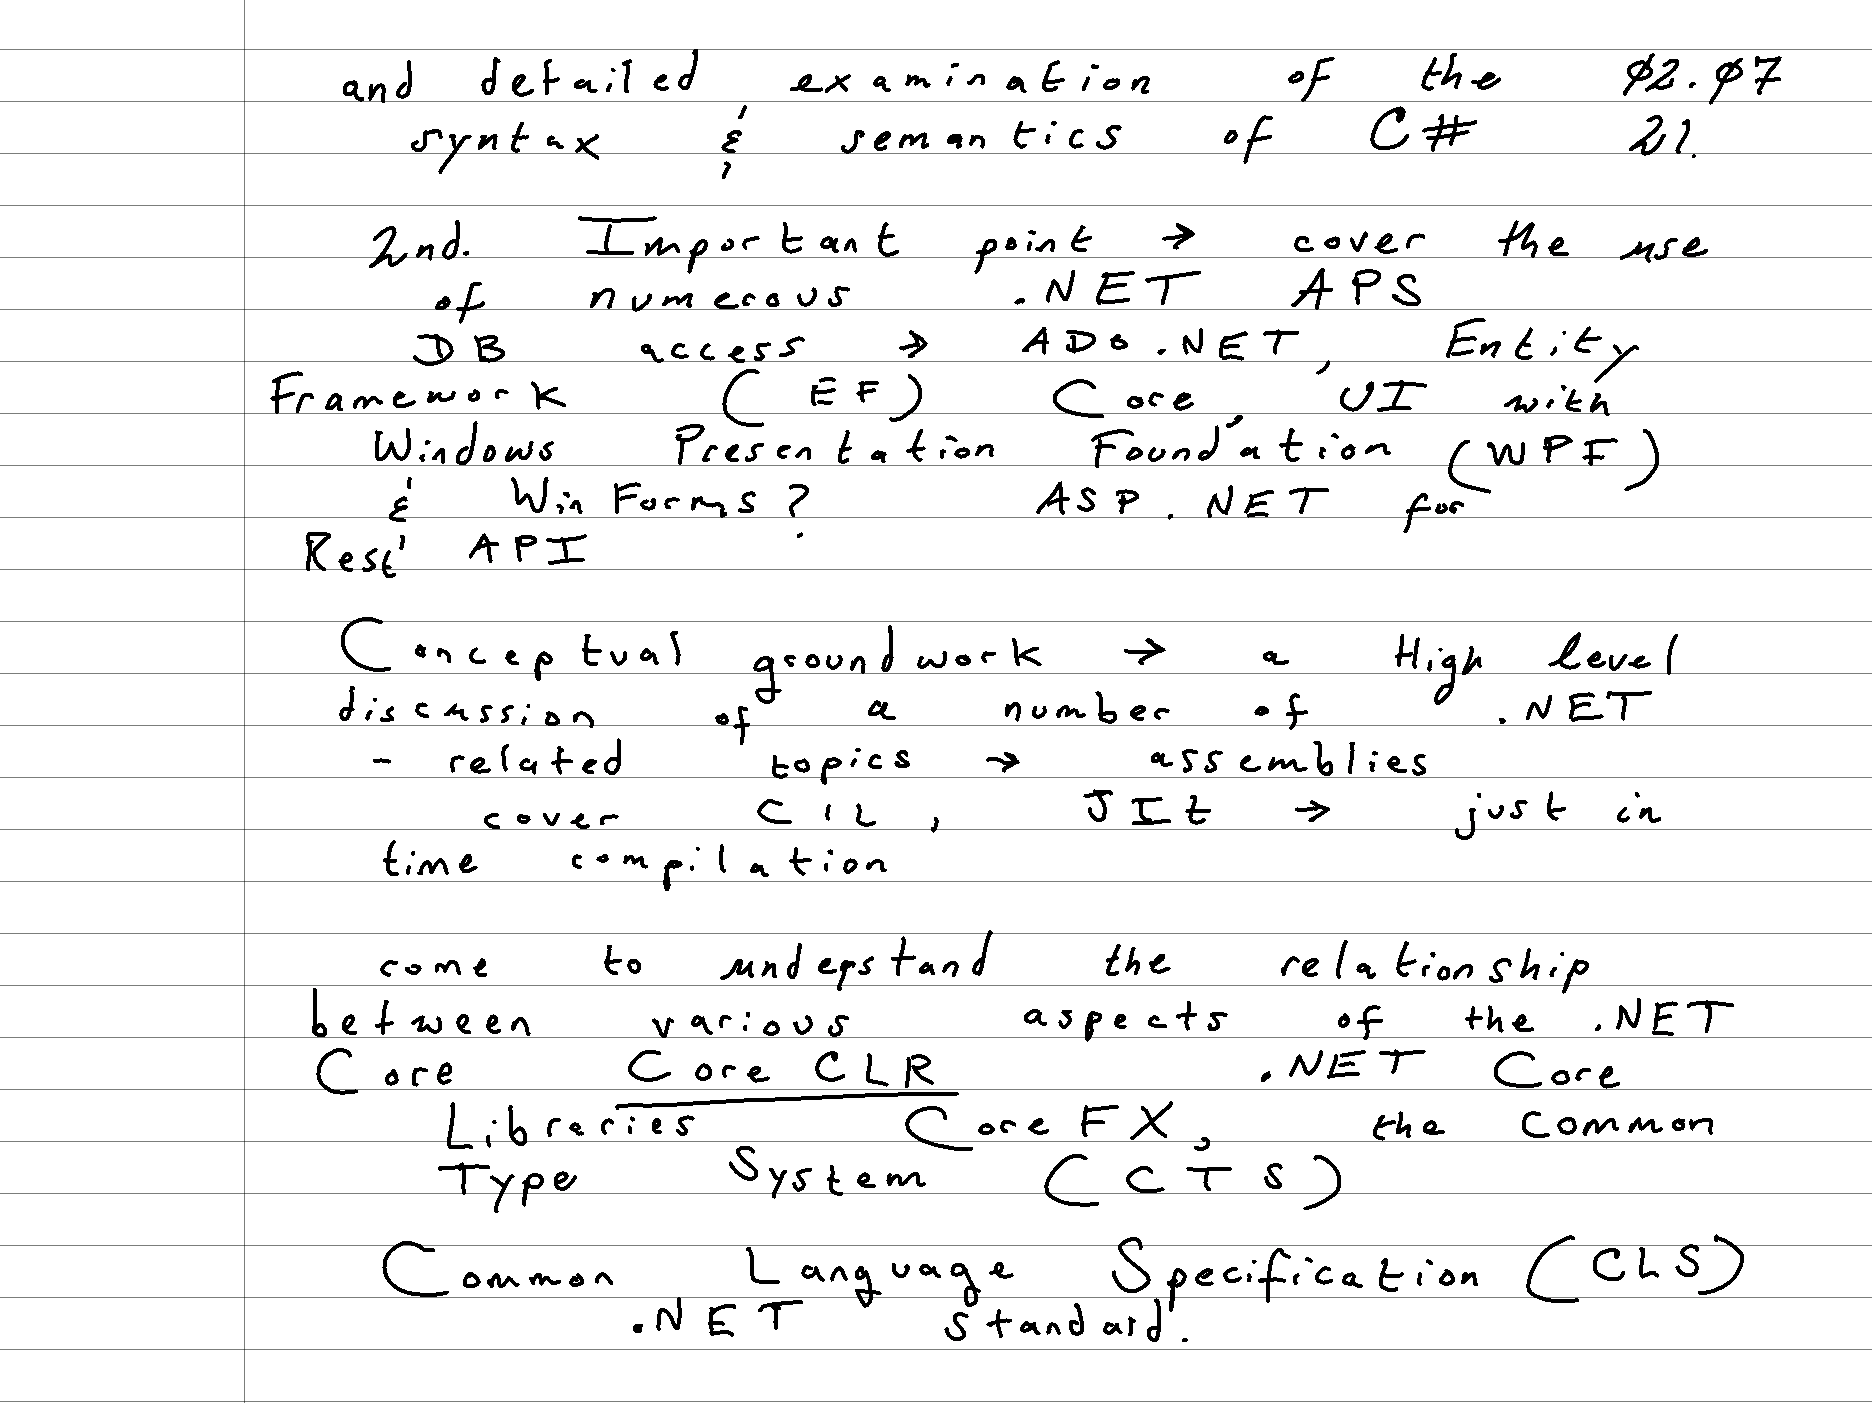 and detailed examination of the 02.07
syntax & semantics of C# 21.
2nd. Important point → cover the use
of numerous .NET APS
DB access → ADO.NET, Entity
Framework (EF) Core, UI with
Windows Presentation Foundation (WPF)
& WinForms? ASP.NET for
Rest API
Conceptual groundwork → a High level
discussion of a number of .NET
- related topics → assemblies
cover CIL, JIt → just in
time compilation
come to understand the relationship
between various aspects of the .NET
Core Core CLR .NET Core
Libraries CoreFX, the Common
Type System (CTS)
Common Language Specification (CLS)
.NET Standard.